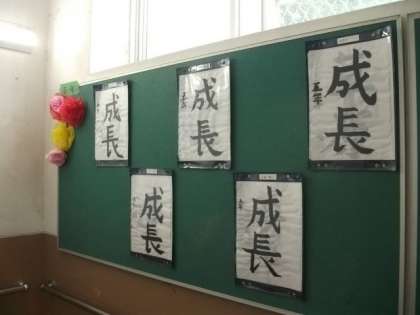 成長
成長
五年
成長
成長
成長